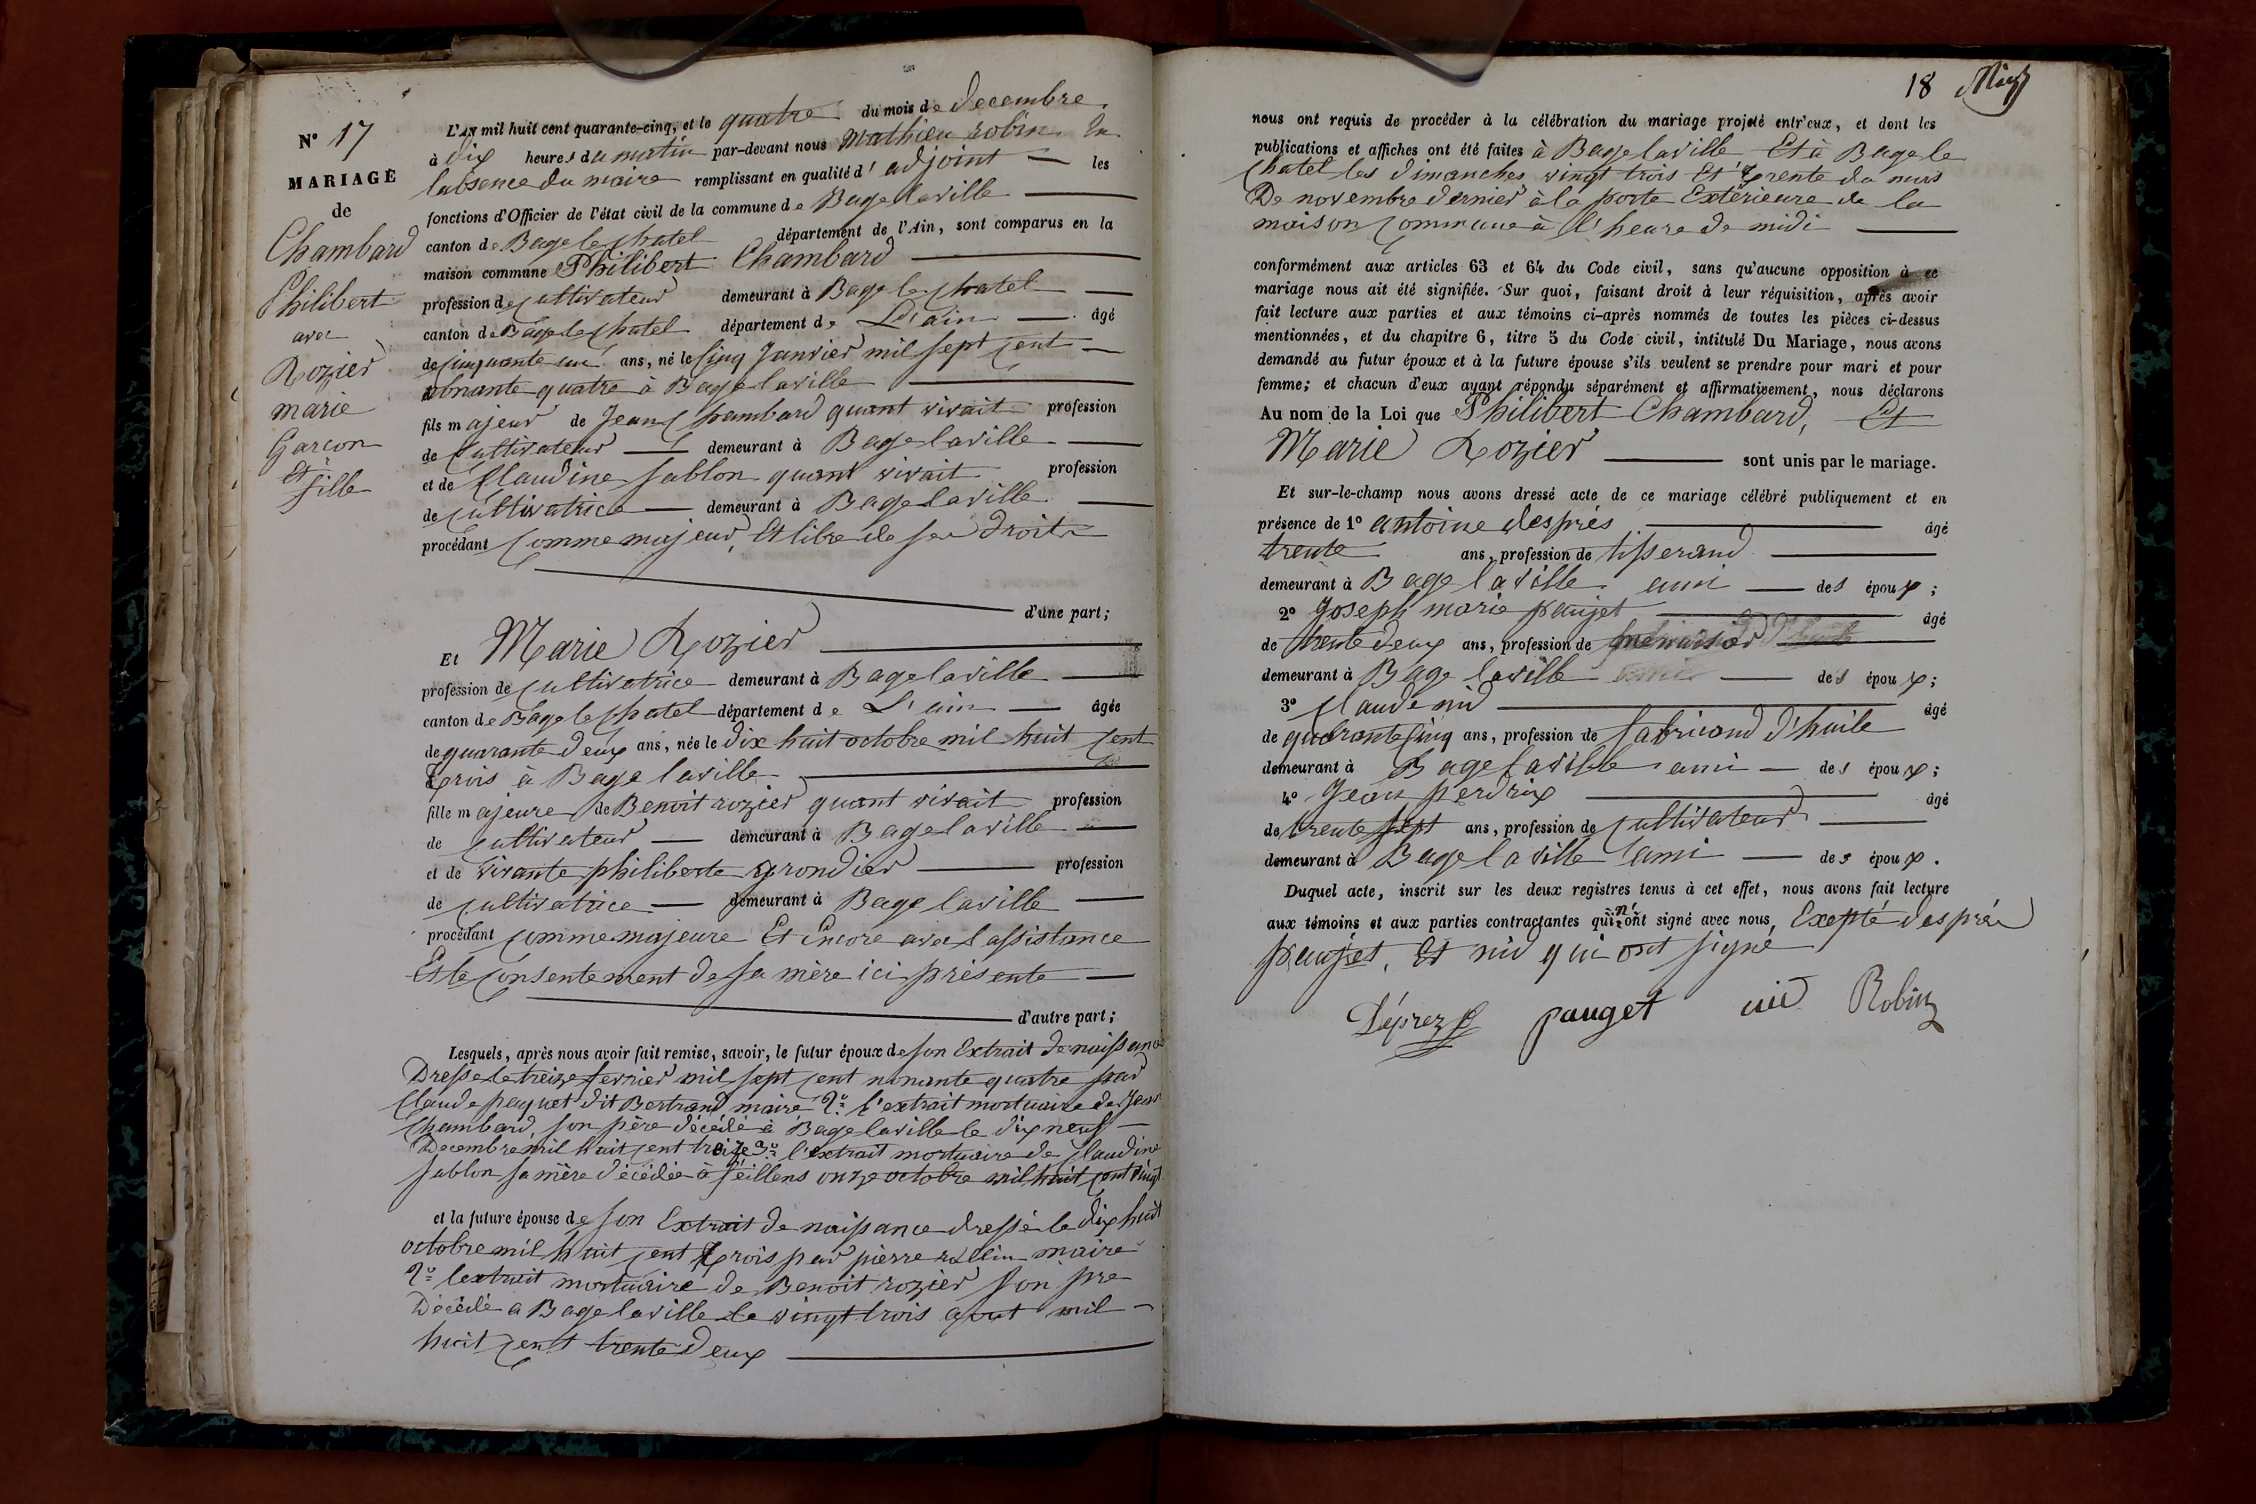 N° 17
MARIAGE
de
Chambard
Philibert
avec
Rozier
marie
Garcon
et
fille
L'AN mil huit cent quarante-cinq, et le quatre du mois de decembre
à dix heures du matin par-devant nous Mathieu robin En
labsence du maire remplissant en qualité d'adjoint les
fonctions d'Officier de l'état civil de la commune de Bage laville
canton de Bage le chatel département de l'Ain, sont comparus en la
maison commune Philibert Chambard
profession de cultivateur demeurant à Bage le chatel
canton de Bage le chatel département de L'ain âgé
de cinquante un ans, né le cinq Janvier mil sept cent
nonante quatre à Bage laville
fils majeur de Jean Chambard quant vivait profession
de cultivateur demeurant à Bage laville
et de Claudine sablon quant vivait profession
de cultivatrice demeurant à Bage laville
procédant comme majeur, Et libre de ses droits
d'une part;
Et Marie Rozier
profession de cultivatrice demeurant à Bage laville
canton de Bage le chatel département de L'ain âgée
de quarante deux ans, née le dix huit octobre mil huit cent
trois à Bage laville
fille majeure de Benoit rozier quant vivait profession
de cultivateur demeurant à Bage laville
et de vivante philiberte grondier profession
de cultivatrice demeurant à Bage laville
procédant comme majeure Et Encore avec lassistance
Et le consentement de sa mère ici présente
d'autre part;
Lesquels, après nous avoir fait remise, savoir, le futur époux de son Extrait de naissance
Dresse le treize fevrier mil sept cent nonante quatre par
Claude paquet dit Bertrand maire 2° l'extrait mortuaire de Jean
Chambard, son père décédé à Bage laville le dix neuf
Decembre mil huit cent treize 3° l'extrait mortuaire de Claudine
sablon sa mère décédée à feillens onze octobre mil huit cent vingt
et la future épouse de son Extrait de naissance dressé le dix huit
octobre mil huit cent trois par pierre rollin maire
2° lextrait mortuaire de Benoit rozier son pre
Décédé a Bage laville le vingt trois aout mil
huit cent trente deux
18
nous ont requis de procéder à la célébration du mariage projeté entr'eux, et dont les
publications et affiches ont été faites à Bage laville Et à Bage le
chatel les dimanches vingt trois Et trente du mois
De novembre dernier à la porte Extérieure de la
maison commune à l'heure de midi
conformément aux articles 63 et 64 du Code civil, sans qu'aucune opposition à ce
mariage nous ait été signifiée. Sur quoi, faisant droit à leur réquisition, après avoir
fait lecture aux parties et aux témoins ci-après nommés de toutes les pièces ci-dessus
mentionnées, et du chapitre 6, titre 5 du Code civil, intitulé Du Mariage, nous avons
demandé au futur époux et à la future épouse s'ils veulent se prendre pour mari et pour
femme; et chacun d'eux ayant répondu séparément et affirmativement, nous déclarons
Au nom de la Loi que Philibert Chambard, Et
Marie Rozier sont unis par le mariage.
Et sur-le-champ nous avons dressé acte de ce mariage célébré publiquement et en
présence de 1° antoine desprès âgé
trente ans, profession de tisserand
demeurant à Bage laville ami des époux;
2° Joseph marie pauget âgé
de trente deux ans, profession de menuisier
demeurant à Bage laville ami des époux;
3° Claude nid âgé
de quarante cinq ans, profession de fabricand d'huile
demeurant à Bage laville ami des époux;
4° Jean perdrix âgé
de trente sept ans, profession de cultivateur
demeurant à Bage laville ami des époux.
Duquel acte, inscrit sur les deux registres tenus à cet effet, nous avons fait lecture
aux témoins et aux parties contractantes qui n'ont signé avec nous, Exepté desprès
pauget, Et nid qui ont signé
Déprez pauget nid Robin